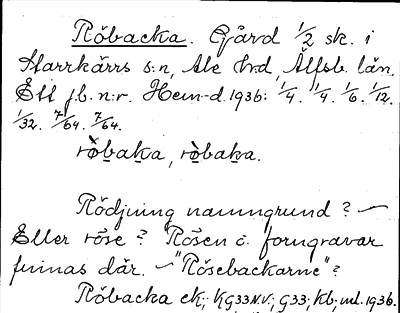 Röbacka. Gård 1/2 sk. i
Starrkärrs s:n, Ale Hrd, Älfsb. län.
Ett f.b. n:r. Hem-d. 1936: 1/4. 1/4. 1/6. 1/12.
1/32. 7/64. 7/64.
röbaka, röbaka.
Rödjning namngrund? —
Eller röse? Rösen o. forngravar
finnas där. — "Rösebackarne"?
Röbacka ek; KG33N.V.; G33; Kb; ml. 1936.